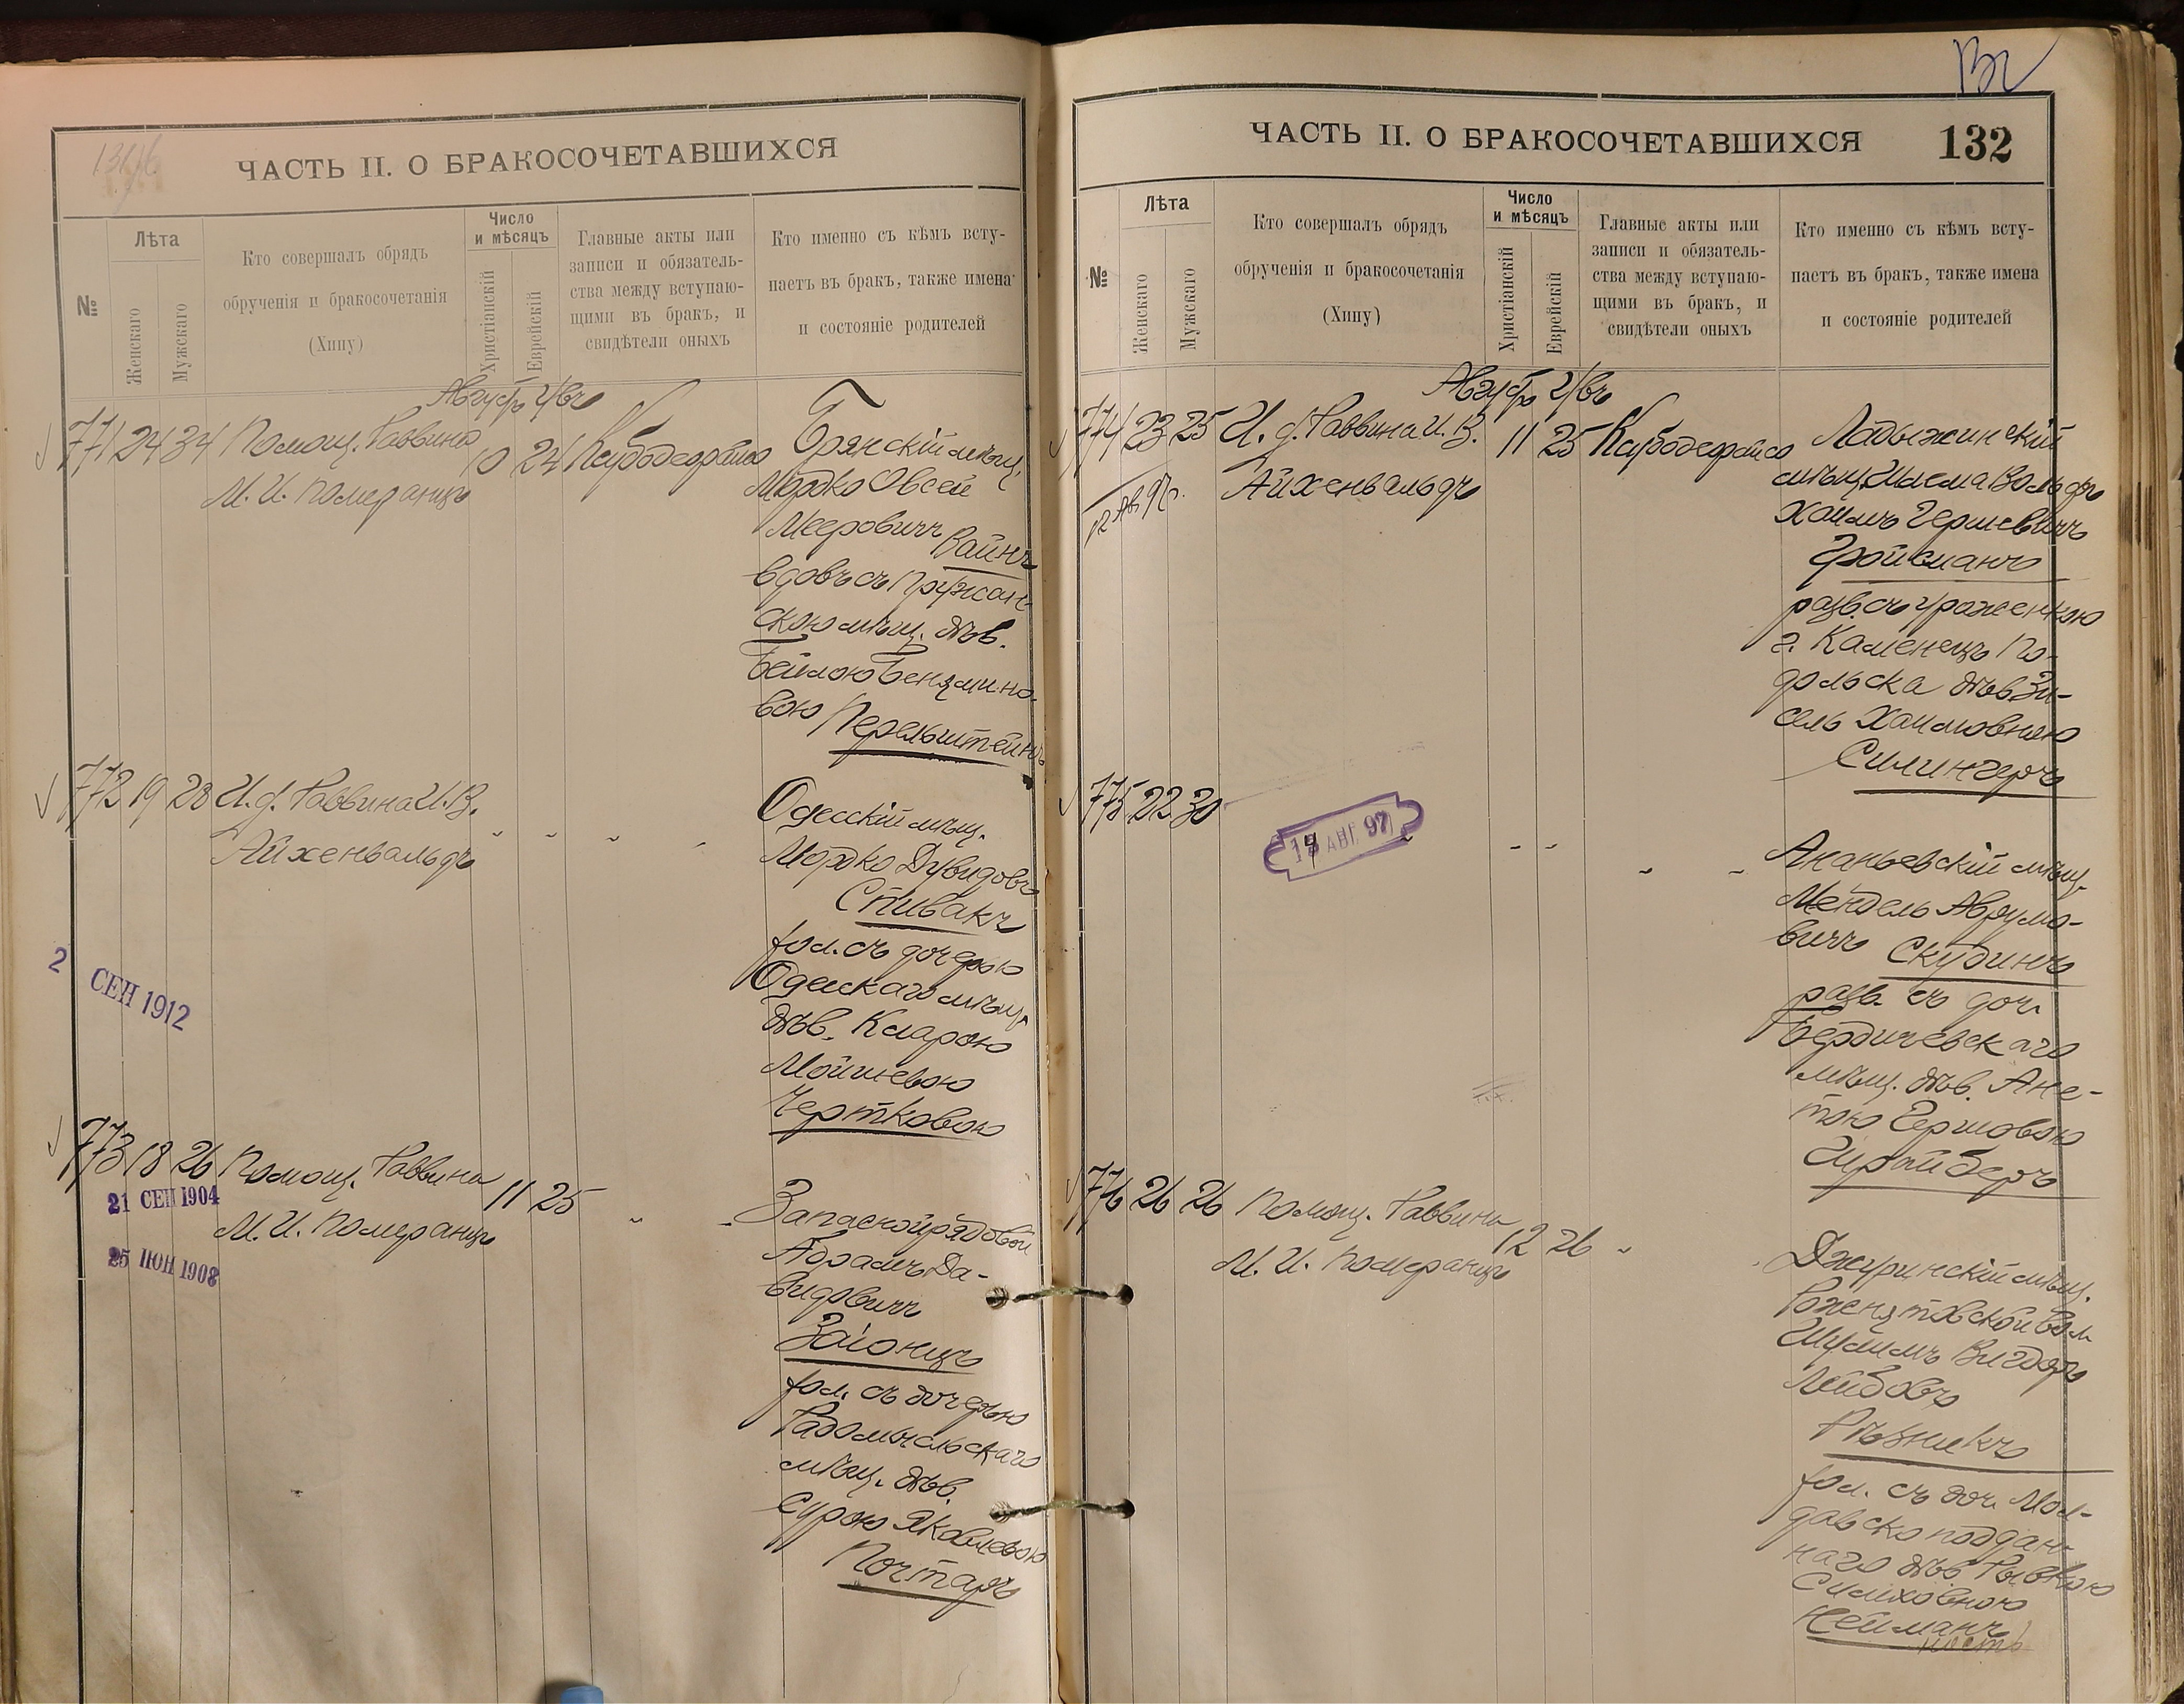 131/б
ЧАСТЬ II. О БРАКОСОЧЕТАВШИХСЯ
№
Лѣта
Женскаго
Мужскаго
Кто совершалъ обрядъ
обрученія и бракосочетанія
(Хипу)
Число
и мѣсяцъ
Христіанскій
Еврейскій
Главные акты или
записи и обязатель-
ства между вступаю-
щими въ бракъ, и
свидѣтели оныхъ
Кто именно съ кѣмъ всту-
паетъ въ бракъ, также имена
и состояніе родителей
771 24 34 Помощ. Раввина
М. И. Померанцъ
10 24
Брянскій мѣщ.
Мордко Овсей
Мееровичъ Вайнъ
вдовъ съ Пружан-
скою мѣщ. дѣв.
Бейлою Бенямино-
вою Перельштейнъ
772 19 28 И. д. Раввина И. В.
Айхенвальдъ
Одесскій мѣщ.
Мордко Дувидовъ
Спивакъ
хол. съ дочерью
Одесскаго мѣщ.
дѣв. Кларою
Мойшевою
Чертковою
2 СЕН 1912
773 18 26 Помощ. Раввина
М. И. Померанцъ
11 25
21 СЕН 1904
25 ІЮН 1908
Запасной рядовой
Абрамъ Да-
видовичъ
Заіонцъ
хол. съ дочерью
Радомысльскаго
мѣщ. дѣв.
Сурою Яковлевою
Почтаръ
132
ЧАСТЬ II. О БРАКОСОЧЕТАВШИХСЯ
132
№
Лѣта
Женскаго
Мужскаго
Кто совершалъ обрядъ
обрученія и бракосочетанія
(Хипу)
Число
и мѣсяцъ
Христіанскій
Еврейскій
Главные акты или
записи и обязатель-
ства между вступаю-
щими въ бракъ, и
свидѣтели оныхъ
Кто именно съ кѣмъ всту-
паетъ въ бракъ, также имена
и состояніе родителей
774 23 25 И. д. Раввина И. В.
Айхенвальдъ
11 25
Ладыжинскій
Хаимъ Гершевичъ
Гройсманъ
разв. съ уроженкою
г. Каменецъ По-
дольска дѣв. Зи-
сель Хаимовною
Силингеръ
775 22 30
АВГ. 97
Ананьевскій мѣщ.
Мендель Аврумо-
вичъ Скудинъ
разв. съ доч.
Бердичевскаго
мѣщ. дѣв. Ане-
тою Гершовою
Шрайберъ
776 26 26 Помощ. Раввина
М. И. Померанцъ
12 26
Джуринскій мѣщ.
Роженятовской вол.
Шулимъ Вигдоръ
Лейбовъ
Рѣзникъ
хол. съ доч. Мол-
давско поддан-
наго дѣв. Рывкою
Нейманъ